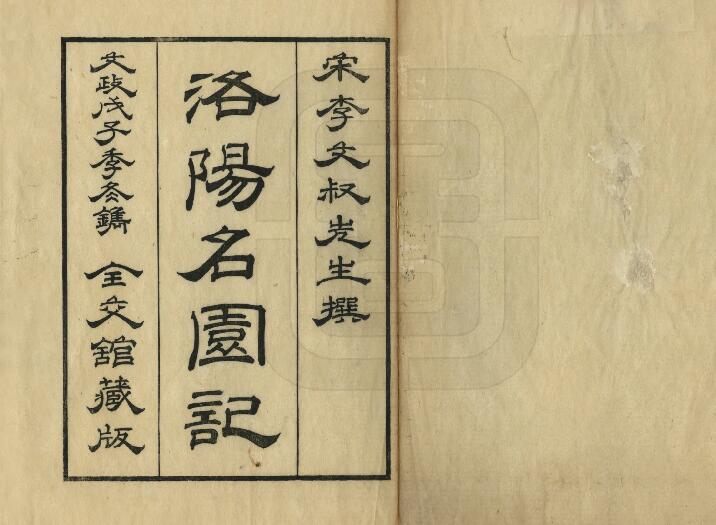 宋李文叔先生撰
洛陽名園記
文政戊子季冬鐫 全交館藏版